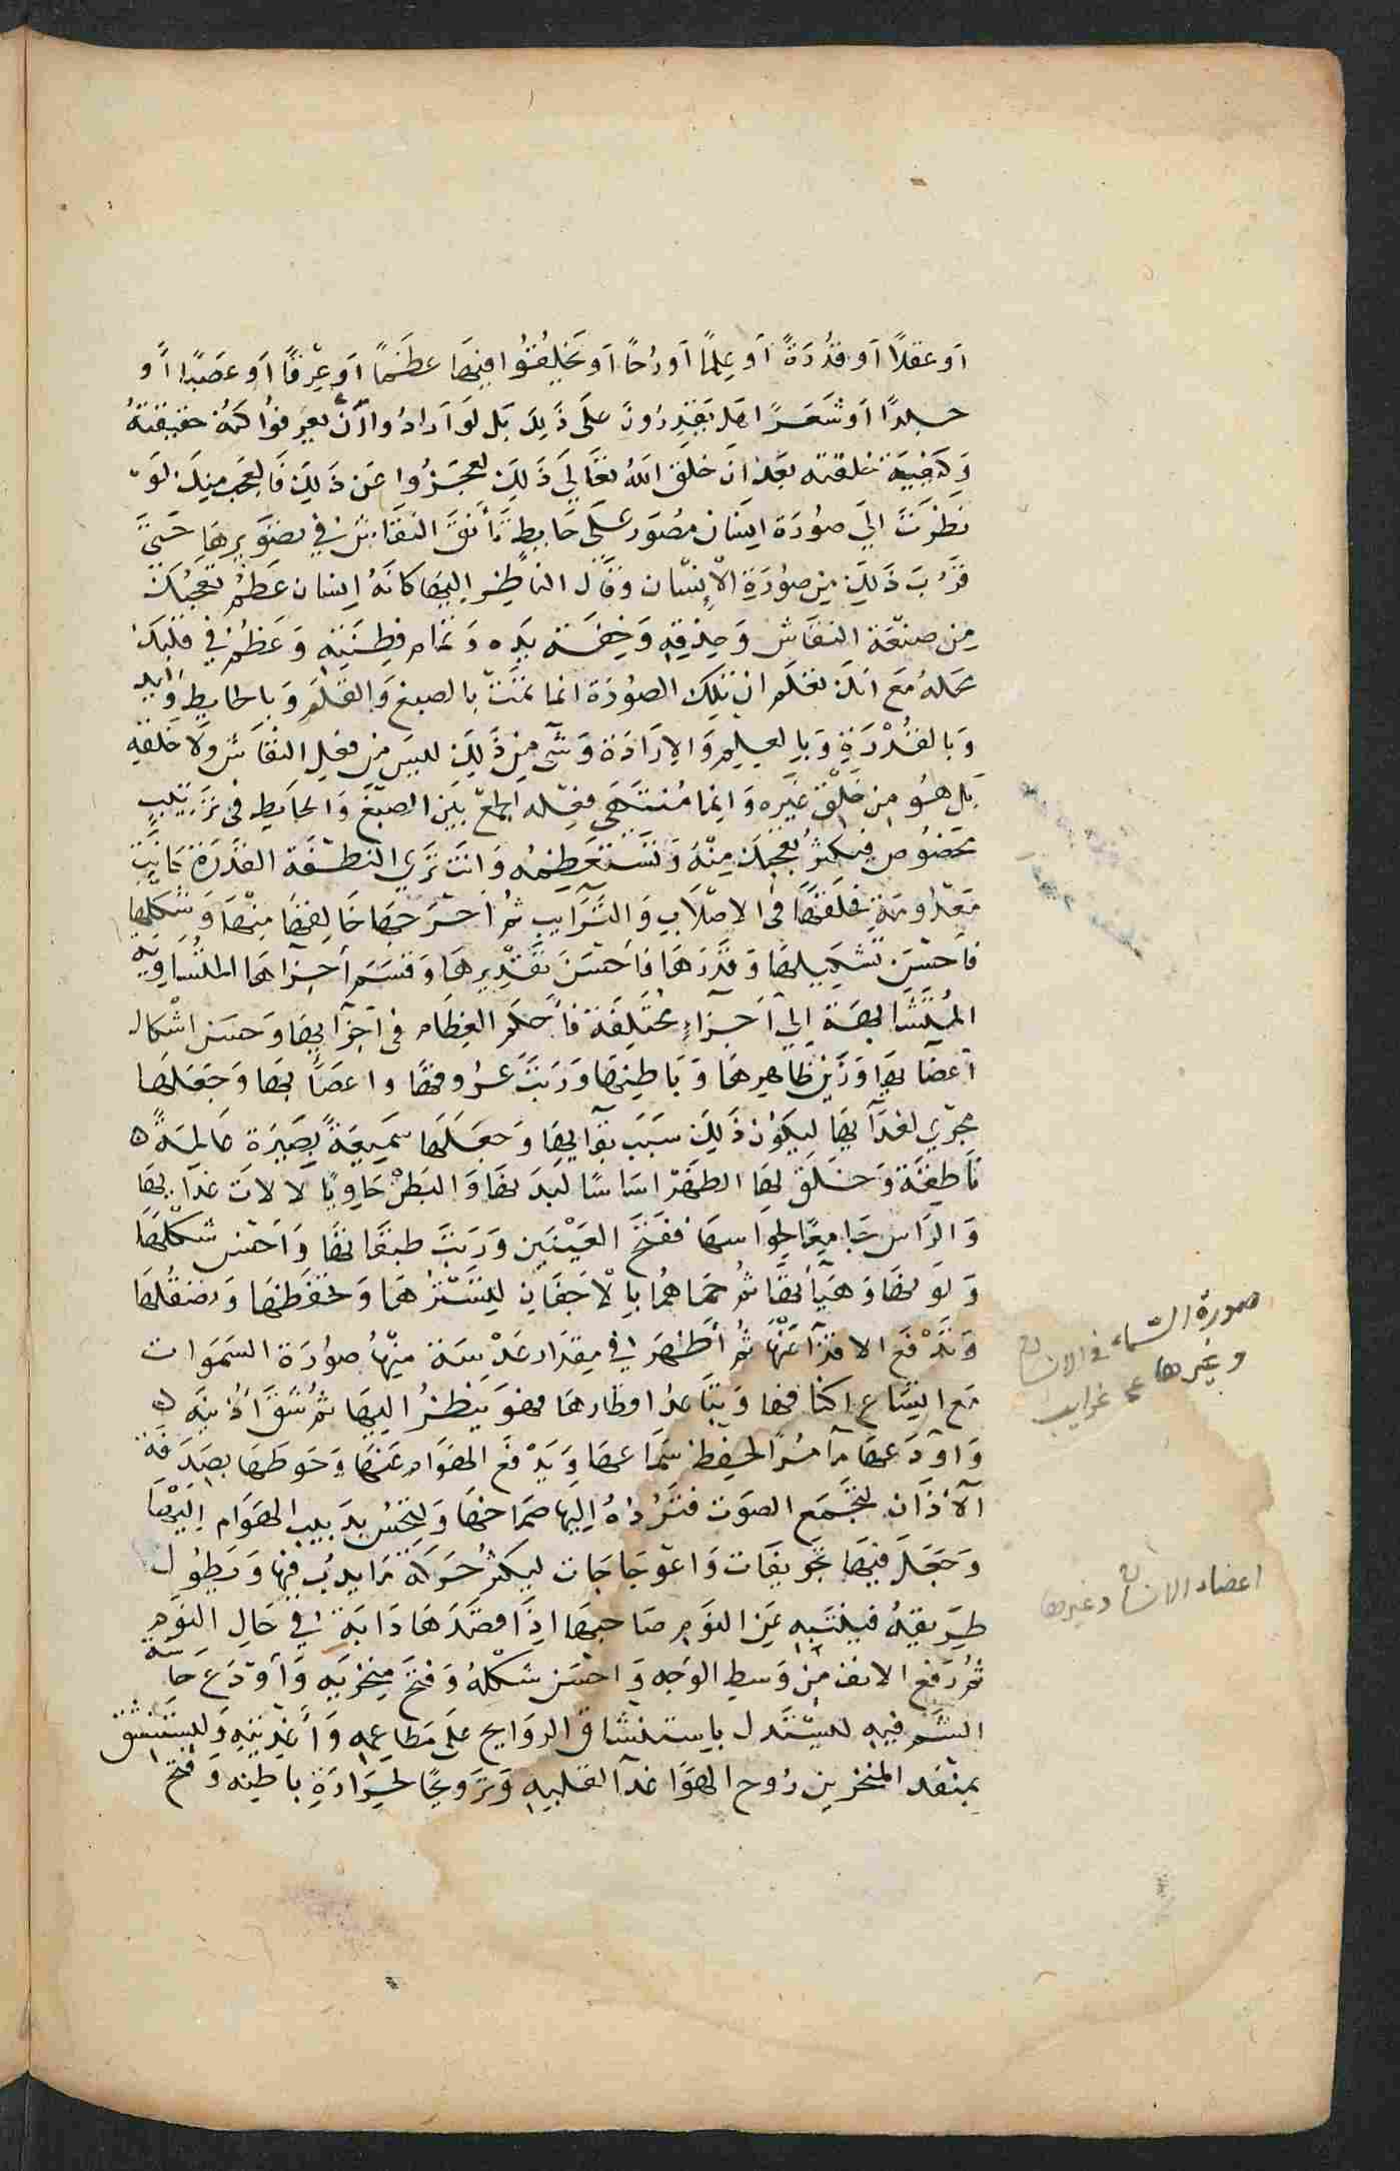 او عقلًا او قُدُرَةً او عِلمًا او رُحًا او يَخلِقُوا فِيهَا عظَمًا او عِرْقًا او عَصَبًا او
جلدًا او شَعَرًا هَل يَقدِرُونَ علَى ذَلِكَ بَل لَو اَرادُوا اَنْ يعرفوُا كُنْهَ حقيقتهُ
وَكيفِيَة خلقته بَعدَ اَن خلَقَ اللهُ تعَالَى ذَلِكَ لعَجَزُوا عَن ذَلِكَ فَالعَجَب مِنكَ لَو
نظرَتَ الَي صوُرَة اِنسَان مصُوَر علَى حَايط تَأنقَ النَقَاشُ في تصَوِيرِهَا حَتيَ
قرُبَ ذَلِكَ مِن صوُرَةِ الاِنسَان وَقَال النَاظِر اليهَا كانَهُ اِنسان عَظمُ تعَجُبكَ
مِن صنعَة النقاش وَحِذقِهِ وَخِفَة يَدِه وَتمَام فِطنَتِهِ وَعَظُمَ في قلبكَ
عمَلهُ مَع اَنكَ تعلَم ان تلِكَ الصوُرَة انما تمَتَ بالصبغ وَالقلَمِ وَبالحايط وَاليد
وَبالقُدرَةِ وَبالعِلمِ وَالاِرَادَة وَشَي مِن ذَلِكَ لليسَ مِن فعلِ النقَاش ولَا خَلقهِ
بَل هُو مِن خلَق غَيرَه وَانما مُنتَهى فعِله الجمَع بيَن الصبَغ وَالحَايط في ترَتيب
مخصُوص فيَكثُر تعجُبكَ مِنهُ وَتستَعظِمُه وَانتَ ترَى النطفَة القذَرَة كانتَ
معَدُومَة فخلَقهَا في الاصلَابِ وَالتَرايب ثُم اَخرَجهَا خَالِقهَا مِنهَا وَشكَلهَا
فاَحسَن تشكِيلهَا وَقدَرَهَا فاَحسَنَ تقدِيرهَا وَقسَمَ اَجزآهَا المتُسَاوِيَة
المُتشَابهَة اِلَي اَجزاءٍ مختَلِفَة فاَحكَم العِظاَم في اَجزآيهَا وَحسَن اشكال
اَعضآيهَا وَزَينَ ظاهِرهَا وَبَاطِنهَا وَرَتبَ عُرُوقهَا واعصَابهَا وَجعَلهَا
مجرَي لغذَآيهَا لِيكَوُن ذَلِكَ سبَبَ بقَآيهَا وَجعَلهَا سَميعَةً بصَيرَة عَالمِةً
ناَطِقَة وَخلَق لهَا الظهَر اسَاسًا لبدَنهَا وَالبَطْن حَاوِيًا لَالَات غذَآيهَا
وَالرَاس جَامِعًا لحوَاسهَا ففَتَح العَيْنَين وَرَتبَ طبقَاتهَا وَاَحسَن شكلهَا
وَلَونهَا وَهَيأتهَا ثُم حمَاهُما بالْاَجفَان لِيتستُرَهما وَتحفَظهَا وَتصقُلهَا
وَتَدْفَع الاقذَآ عَنهَا ثُم اَظهَرَ في مِقدَار عدَسَة مِنهَا صوُرَة السَموَات
مَع اتسَاع اكنافها وَتبَاعد اقطارهَا فهوَ يَنظرُ اليهَا ثُم شَقَ اُذُنيَه
وَاَودَعهَا مآ مُرًا لحِفظ سمَاعهَا وَيَدْفَع الهَوَام عنَهَا وَحَوطَهَا بصَدَفَة
الْاُذان لتَجمَع الصَوت فتَرُدهُ اِليَها صمَاخهَا وَلتحِسُ بدَبيب الهوَام اِليَهَا
وَجعَلَ فيَهَا تجوِيفَات وَاعوِجَاجَات ليكثُر حَركَة مَا يدِبُ فيهَا وَيَطُول
طَرِيقهُ فيَنتَبِه عَن النَوم صَاحِبهَا اذَا قصَدَهَا دَابَةٌ في حَالِ النَوم
ثُم رَفَع الانف مِن وَسطِ الوَجه وَاَحْسَن شكلهُ وَفتحَ مِنخرَيه وَاَودَع حَاسَة
الشَم فيِهِ ليستَدل باِستنشَاق الرَوَايح علَى مَطاعِمِه وَاَغذِيتِهِ وَليستنشق
بمنفذ المنخرين رُوح الهوَا غذآ لقلبِهِ وَترَوِيحًا لحرَارَةِ باطِنِه وَفتح
صورة السماء في الانسان
وغيرها عن غرايب
اعضاء الانسان وغيرها